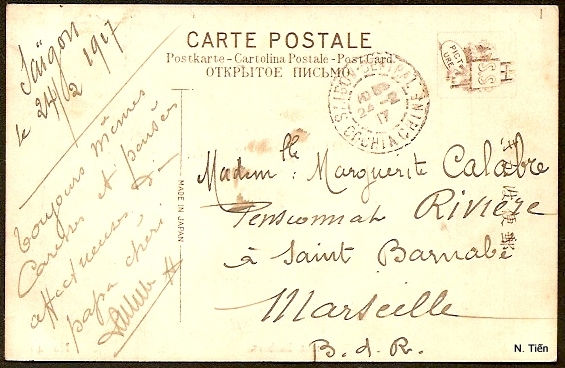 CARTE POSTALE
Postkarte - Cartolina Postale - Post Card.
ОТКРЫТОЕ ПИСЬМО
Saïgon
le 24/2 1917
Toujours mêmes
Caresses et pensées
affectueuses
papa chéri
MADE IN JAPAN
SAIGON CENTRAL
24 - 2
17
COCHINCHINE
Madem lle Marguerite Calabre
Pensionnat Rivière
à Saint Barnabé
Marseille
B. d. R.
N. Tiến